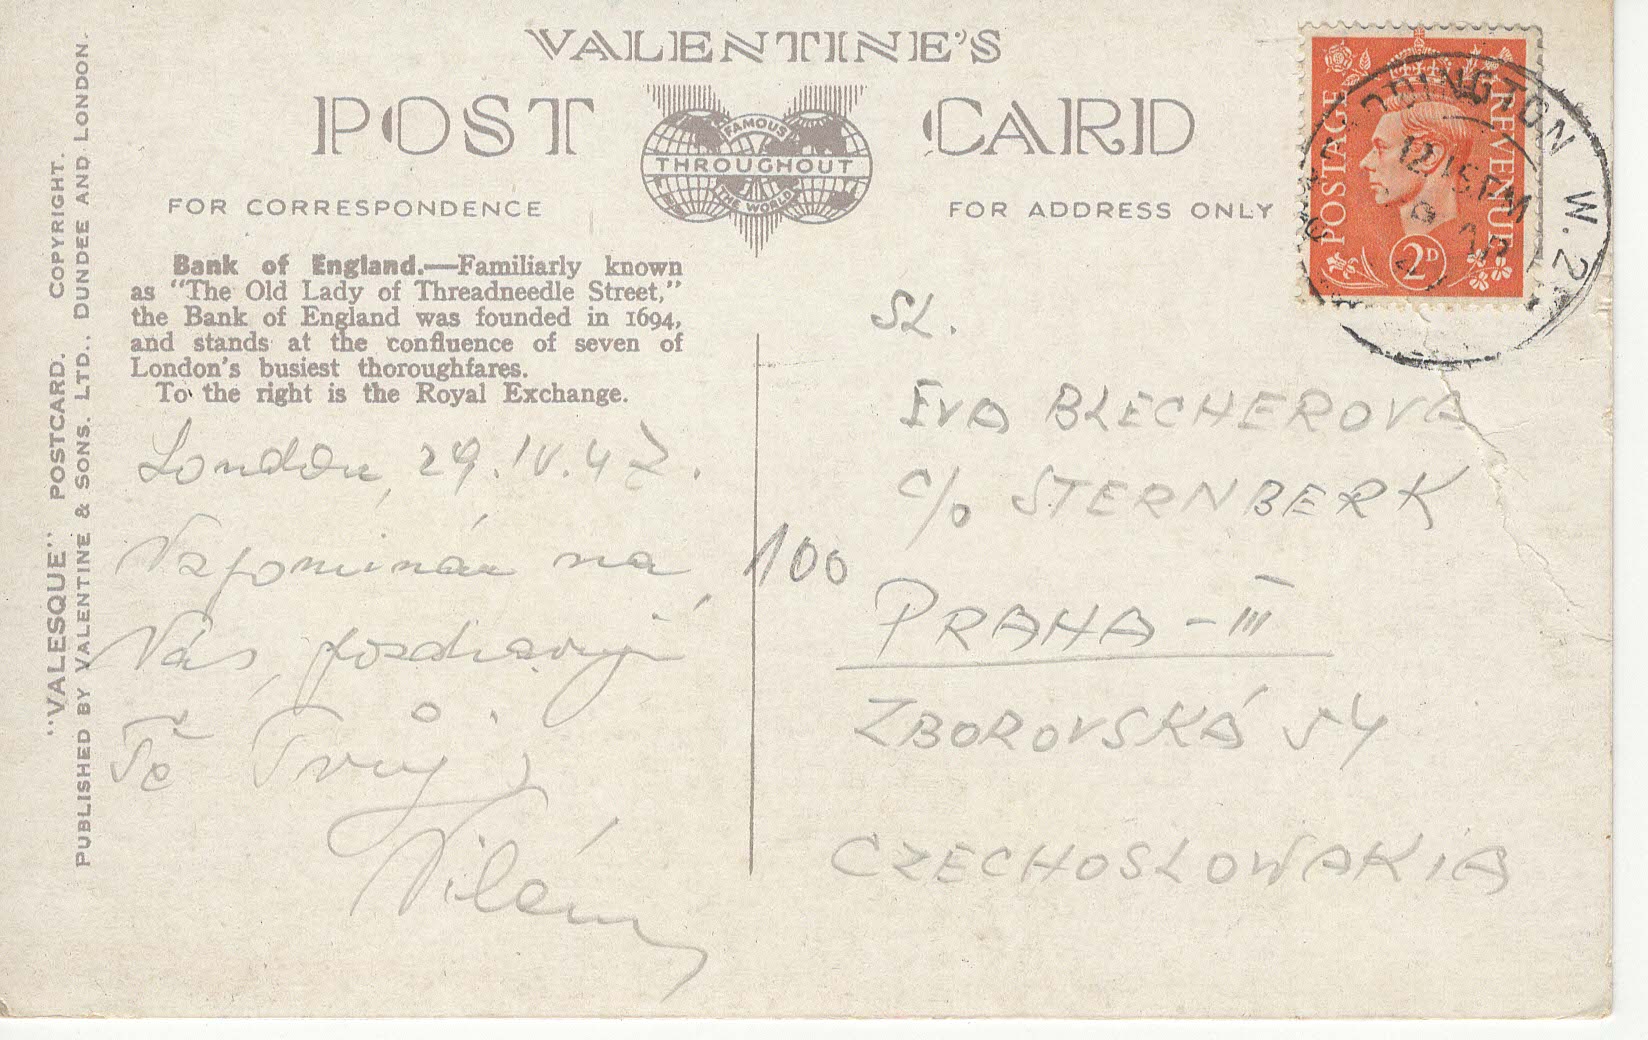 VALENTINE'S
POST CARD
FAMOUS
THROUGHOUT
THE WORLD
FOR CORRESPONDENCE
FOR ADDRESS ONLY
"VALESQUE" POSTCARD. COPYRIGHT.
PUBLISHED BY VALENTINE & SONS. LTD., DUNDEE AND LONDON.
Bank of England.—Familiarly known
as "The Old Lady of Threadneedle Street,"
the Bank of England was founded in 1694,
and stands at the confluence of seven of
London's busiest thoroughfares.
To the right is the Royal Exchange.
London, 29.IV.47.
Vzpomínám na
Vás, pozdravuji
Tě Tvůj
Vilém
100
POSTAGE REVENUE
2D
PADDINGTON W.2
12 15 PM
SL.
EVA BLECHEROVA
C/o STERNBERK
PRAHA - III
ZBOROVSKÁ 54
CZECHOSLOWAKIA